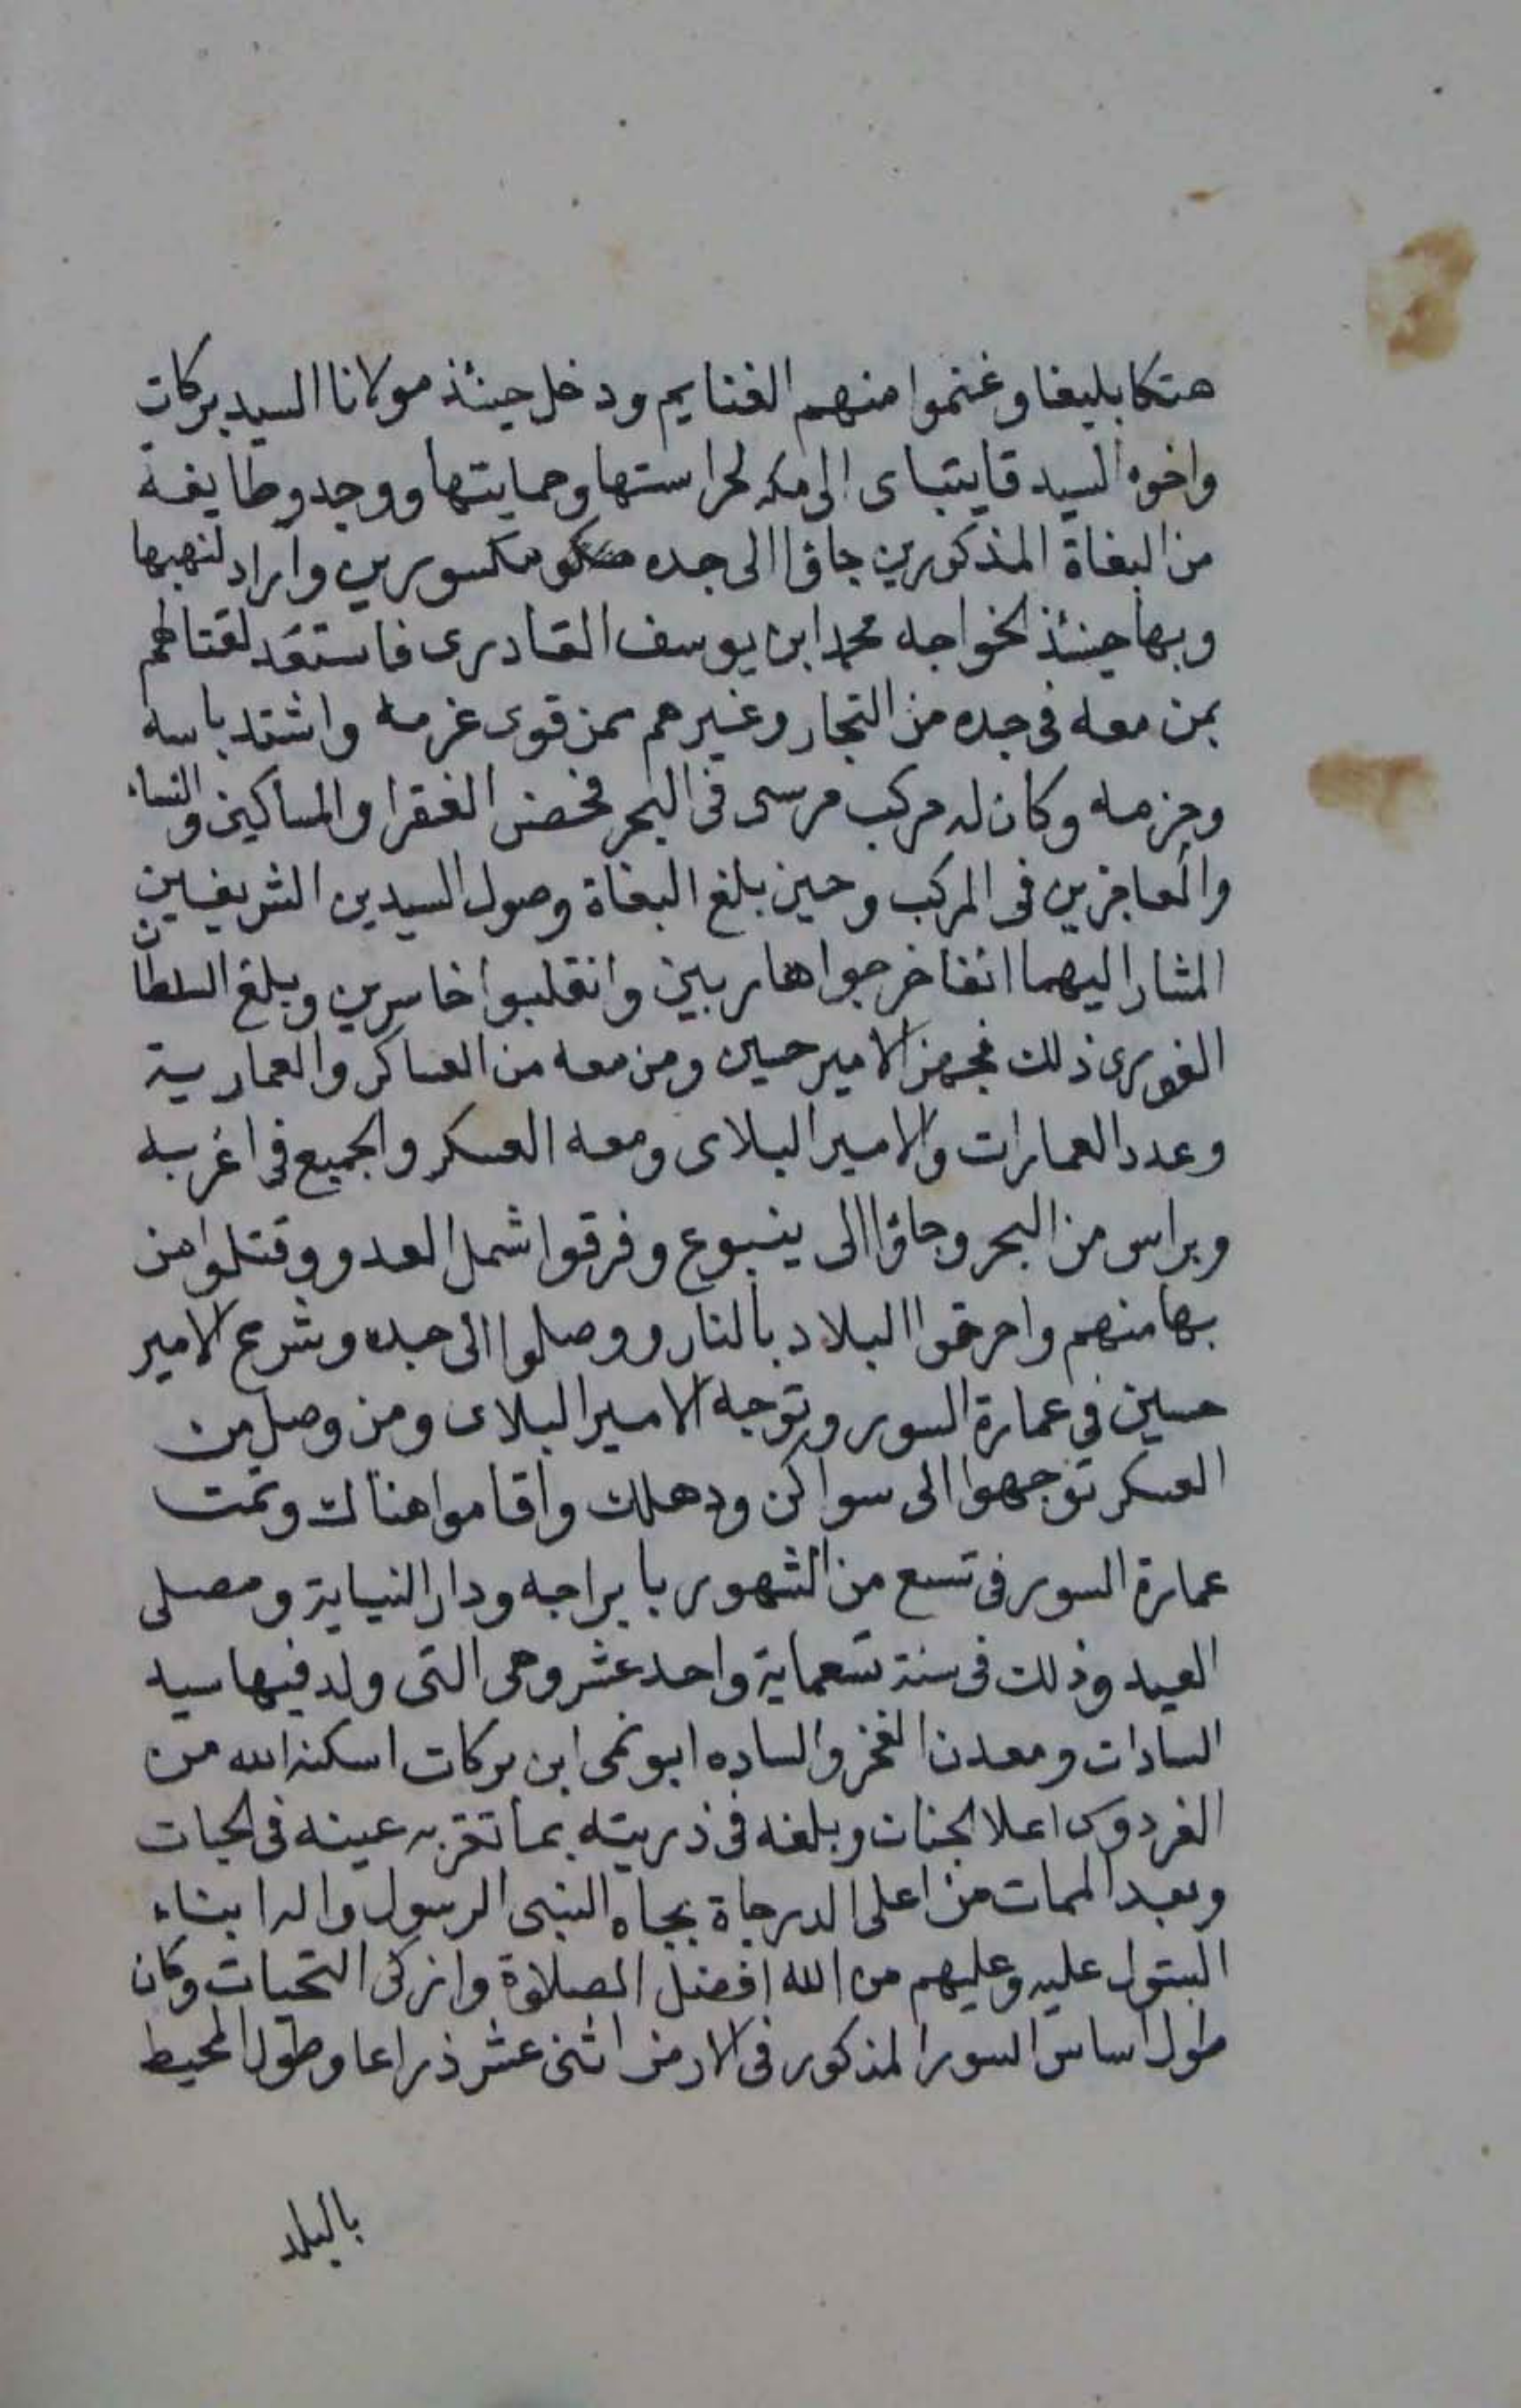 هتكا بليغا وغنموا منهم الغنايم ودخل حينئذ مولانا السيد بركات
واخوه السيد قايتباى الى مكه لحراستها وحمايتها ووجدو طايفة
من البغاة المذكورين جاؤا الى جده مكسورين واراد لنهبها
وبها حينئذ الخواجه محمد ابن يوسف القادرى فاستعد لقتالهم
بمن معه فى جده من التجار وغيرهم ممن قوى عزمه واشتد باسه
وحزمه وكان له مركب مرسى فى البحر فحصن الفقرا والمساكين والنساء
والعاجزين فى المركب وحين بلغ البغاة وصول السيدين الشريفين
المشار اليهما انفا خرجوا هاربين وانقلبوا خاسرين وبلغ السلطان
الغورى ذلك فجهز الامير حسين ومن معه من العساكر والعمارية
وعدد العمارات والامير البلاى ومعه العسكر والجميع فى اغربه
وبراس من البحر وجاؤا الى ينبوع وفرقوا شمل العدو وقتلوا من
بها منهم واحرقوا البلاد بالنار ووصلوا الى جده وشرع الامير
حسين فى عمارة السور وتوجه الامير البلاى ومن وصل من
العسكر توجهوا الى سواكن ودهلك واقاموا هناك وتمت
عمارة السور فى تسع من الشهور بابراجه ودار النيابة ومصلى
العيد وذلك فى سنة تسعماية واحد عشر وهى التى ولد فيها سيد
السادات ومعدن الفخر والساده ابو نمى ابن بركات اسكنه الله من
الفردوس اعلا الجنات وبلغه فى ذريته بما تقر به عينه فى الحيات
وبعد الممات من اعلى الدرجاة بجاه النبى الرسول واله ابناء
البتول عليه وعليهم من الله افضل الصلاة وازكى التحيات وكان
طول اساس السور المذكور فى الارض اثنى عشر ذراعا وطول المحيط
بالبلد